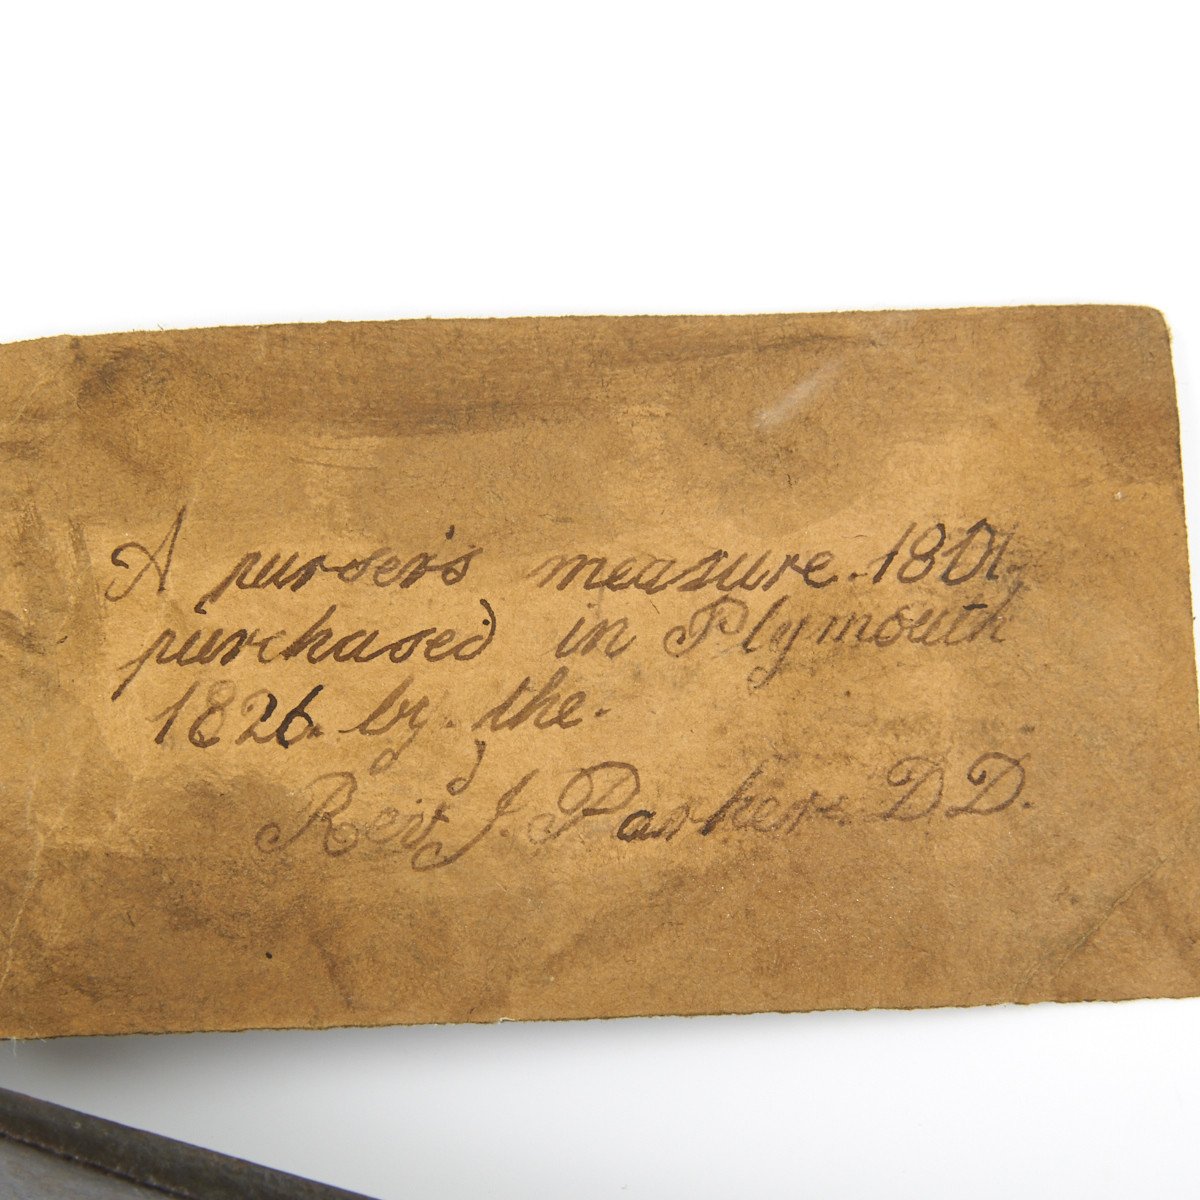 A purser's measure. 1801,
purchased in Plymouth
1826. by. the.
Rev J. Parker. D D.